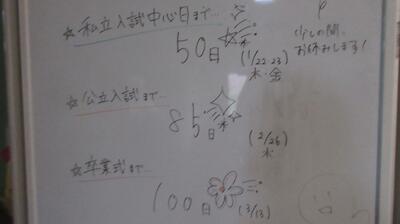 ☆私立入試中心日まで…
50日
(1/22・23)
木・金
少しの間、
お休みします!
☆公立入試まで…
85日
(2/26)
木
☆卒業式まで…
100日
(3/13)